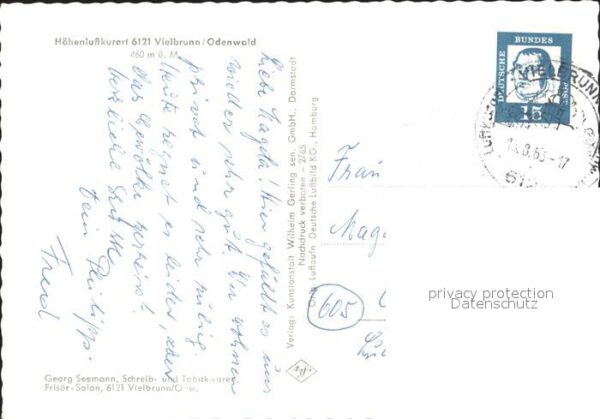 Höhenluftkurort 6121 Vielbrunn/Odenwald
460 m ü. M.
Liebe Magda! Hier gefällt es uns
wieder sehr gut. Wir wohnen
privat und sehr ruhig.
Heute regnet es leider, aber
das Gewölke zerreisst.
Herzliche Grüße
Dein Philipp.
Fred
Georg Seemann, Schreib- und Tabakwaren
Frisör-Salon, 6121 Vielbrunn/Odw.
Verlag: Kunstanstalt Wilhelm Gerling sen. GmbH., Darmstadt
Nachdruck verboten – 2765
Orig. Luftaufn. Deutsche Luftbild KG., Hamburg
DEUTSCHE
BUNDES
15
VIELBRUNN
612
Frau
Mag
605
privacy protection
Datenschutz